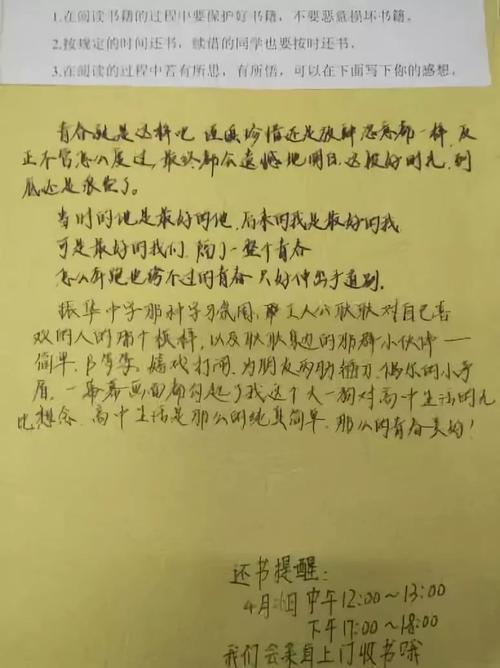 1.在阅读书籍的过程中要保护好书籍，不要恶意损坏书籍。
2.按规定的时间还书，续借的同学也要按时还书。
3.在阅读的过程中若有所思，有所悟，可以在下面写下你的感想。
青春就是这样吧 逗逼珍惜还是放肆恣意都一样，反
正不管怎么度过，最终都会遗憾地明白，这般好时光，到
底还是浪费了。
当时的他是最好的他，后来的我是最好的我
可是最好的我们，隔了一整个青春
怎么奔跑也跨不过的青春 只好伸出手道别
振华中学那种学习氛围，主人公耿耿对自己喜
欢的人的那个模样，以及耿耿身边的那群小伙伴——
简单，嬉戏打闹，为朋友两肋插刀，偶尔的小矛
盾，一幕幕画面都勾起了我这个大一狗对高中生活的无
比想念，高中生活是那么的纯真简单，那么的青春美好！
还书提醒：
4月 日 中午12:00～13:00
下午17:00～18:00
我们会亲自上门收书哦